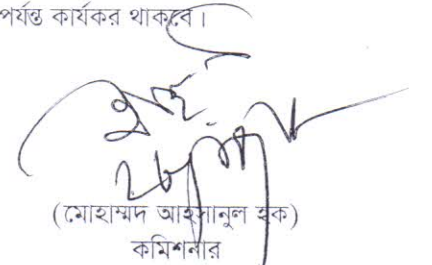 পর্যন্ত কার্যকর থাকবে।
(মোহাম্মদ আহসানুল হক)
কমিশনার